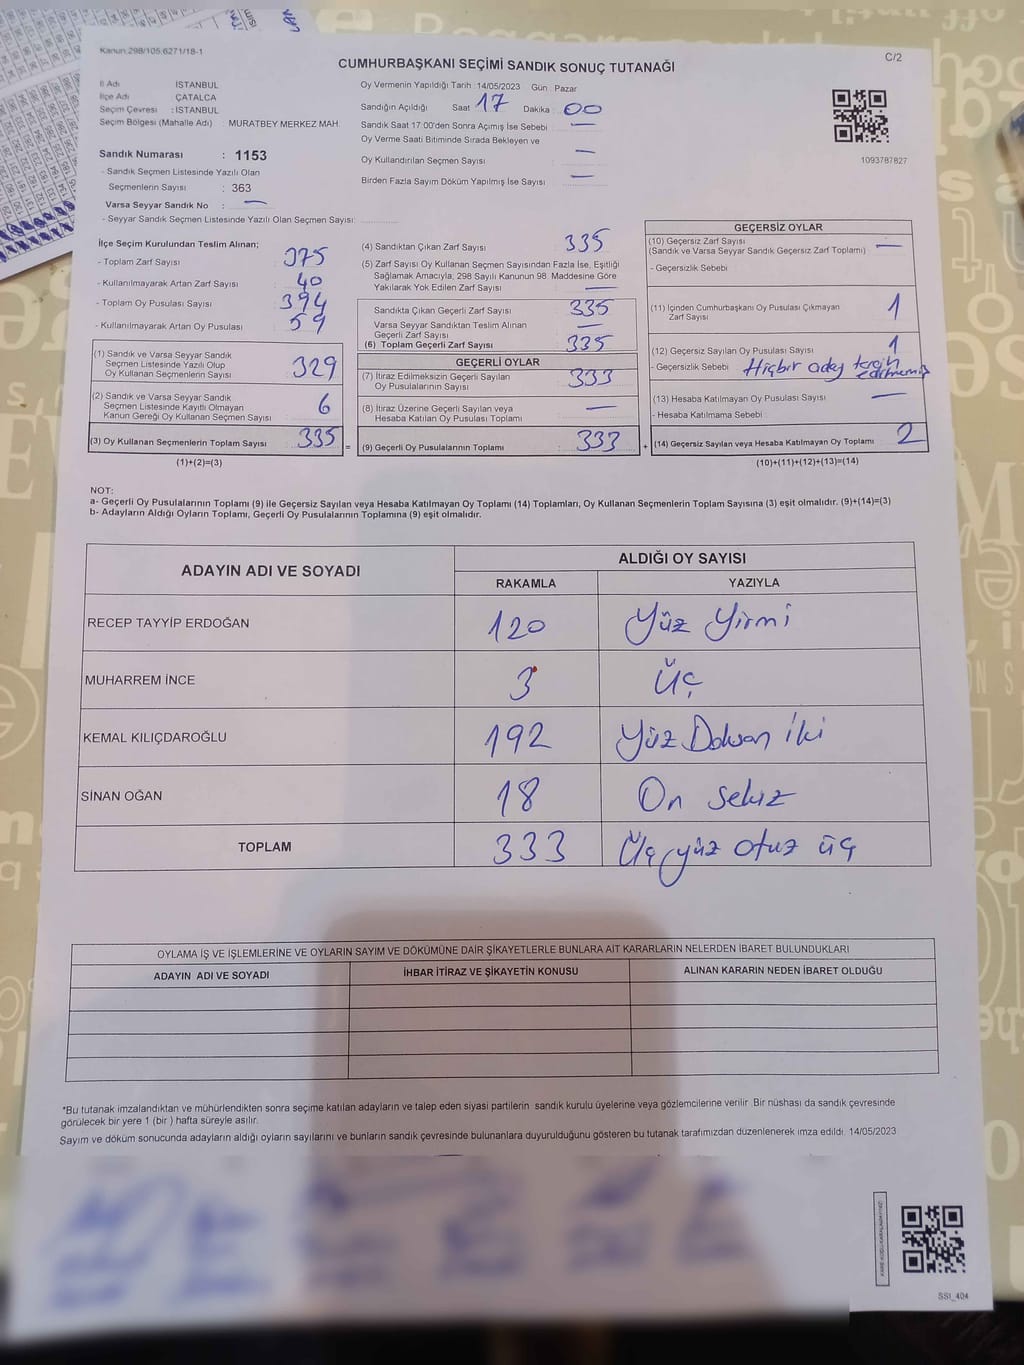 Kanun 298/105,6271/18-1
C/2
CUMHURBAŞKANI SEÇİMİ SANDIK SONUÇ TUTANAĞI
İl Adı : İSTANBUL
İlçe Adı : ÇATALCA
Seçim Çevresi : İSTANBUL
Seçim Bölgesi (Mahalle Adı) : MURATBEY MERKEZ MAH.
Sandık Numarası : 1153
- Sandık Seçmen Listesinde Yazılı Olan
Seçmenlerin Sayısı : 363
Varsa Seyyar Sandık No : —
- Seyyar Sandık Seçmen Listesinde Yazılı Olan Seçmen Sayısı:
Oy Vermenin Yapıldığı Tarih : 14/05/2023 Gün : Pazar
Sandığın Açıldığı Saat 17 Dakika : 00
Sandık Saat 17:00'den Sonra Açımış İse Sebebi : —
Oy Verme Saati Bitiminde Sırada Bekleyen ve
Oy Kullandırılan Seçmen Sayısı : —
Birden Fazla Sayım Döküm Yapılmış İse Sayısı : —
1093787827
İlçe Seçim Kurulundan Teslim Alınan;
- Toplam Zarf Sayısı : 375
- Kullanılmayarak Artan Zarf Sayısı : 40
- Toplam Oy Pusulası Sayısı : 394
- Kullanılmayarak Artan Oy Pusulası : 59
(1) Sandık ve Varsa Seyyar Sandık
Seçmen Listesinde Yazılı Olup
Oy Kullanan Seçmenlerin Sayısı : 329
(2) Sandık ve Varsa Seyyar Sandık
Seçmen Listesinde Kayıtlı Olmayan
Kanun Gereği Oy Kullanan Seçmen Sayısı : 6
(3) Oy Kullanan Seçmenlerin Toplam Sayısı : 335 =
(1)+(2)=(3)
(4) Sandıktan Çıkan Zarf Sayısı : 335
(5) Zarf Sayısı Oy Kullanan Seçmen Sayısından Fazla İse, Eşitliği
Sağlamak Amacıyla, 298 Sayılı Kanunun 98. Maddesine Göre
Yakılarak Yok Edilen Zarf Sayısı : —
Sandıkta Çıkan Geçerli Zarf Sayısı : 335
Varsa Seyyar Sandıktan Teslim Alınan
Geçerli Zarf Sayısı : —
(6) Toplam Geçerli Zarf Sayısı : 335
GEÇERLİ OYLAR
(7) İtiraz Edilmeksizin Geçerli Sayılan
Oy Pusulalarının Sayısı : 333
(8) İtiraz Üzerine Geçerli Sayılan veya
Hesaba Katılan Oy Pusulası Toplamı : —
(9) Geçerli Oy Pusulalarının Toplamı : 333 +
GEÇERSİZ OYLAR
(10) Geçersiz Zarf Sayısı : —
(Sandık ve Varsa Seyyar Sandık Geçersiz Zarf Toplamı)
- Geçersizlik Sebebi :
(11) İçinden Cumhurbaşkanı Oy Pusulası Çıkmayan
Zarf Sayısı : 1
(12) Geçersiz Sayılan Oy Pusulası Sayısı : 1
- Geçersizlik Sebebi : Hiçbir aday tercih edilmemiş
(13) Hesaba Katılmayan Oy Pusulası Sayısı : —
- Hesaba Katılmama Sebebi :
(14) Geçersiz Sayılan veya Hesaba Katılmayan Oy Toplamı : 2
(10)+(11)+(12)+(13)=(14)
NOT:
a- Geçerli Oy Pusulalarının Toplamı (9) ile Geçersiz Sayılan veya Hesaba Katılmayan Oy Toplamı (14) Toplamları, Oy Kullanan Seçmenlerin Toplam Sayısına (3) eşit olmalıdır. (9)+(14)=(3)
b- Adayların Aldığı Oyların Toplamı, Geçerli Oy Pusulalarının Toplamına (9) eşit olmalıdır.
ADAYIN ADI VE SOYADI
ALDIĞI OY SAYISI
RAKAMLA YAZIYLA
RECEP TAYYİP ERDOĞAN 120 Yüz Yirmi
MUHARREM İNCE 3 Üç
KEMAL KILIÇDAROĞLU 192 Yüz Doksan İki
SİNAN OĞAN 18 On Sekiz
TOPLAM 333 Üç yüz otuz üç
OYLAMA İŞ VE İŞLEMLERİNE VE OYLARIN SAYIM VE DÖKÜMÜNE DAİR ŞİKAYETLERLE BUNLARA AİT KARARLARIN NELERDEN İBARET BULUNDUKLARI
ADAYIN ADI VE SOYADI İHBAR İTİRAZ VE ŞİKAYETİN KONUSU ALINAN KARARIN NEDEN İBARET OLDUĞU
*Bu tutanak imzalandıktan ve mühürlendikten sonra seçime katılan adayların ve talep eden siyasi partilerin sandık kurulu üyelerine veya gözlemcilerine verilir. Bir nüshası da sandık çevresinde
görülecek bir yere 1 (bir ) hafta süreyle asılır.
Sayım ve döküm sonucunda adayların aldığı oyların sayılarını ve bunların sandık çevresinde bulunanlara duyurulduğunu gösteren bu tutanak tarafımızdan düzenlenerek imza edildi. 14/05/2023
SSI_404